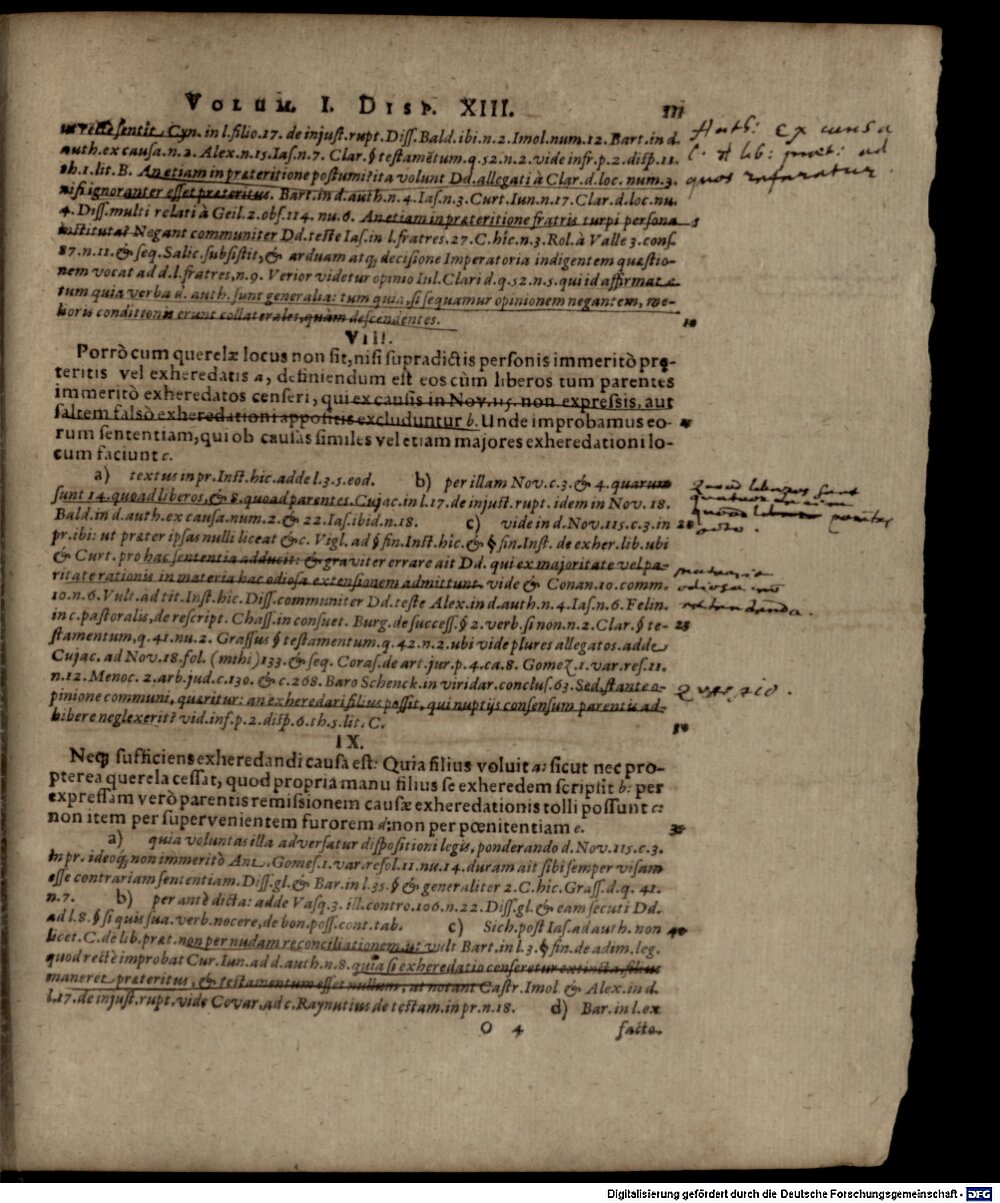 VOLUM. I. DISP. XIII.
sentit. Cyn. in l. filio. 17. de injust. rupt. Diss. Bald. ibi. n. 2. Imol. num. 12. Bart. in d.
auth. ex causa. n. 2. Alex. n. 15. Ias. n. 7. Clar. § testamẽtum. q. 52. n. 2. vide infr. p. 2. disp. 11.
th. 1. lit. B. An etiam in præteritione postumi? ita volunt Dd. allegati à Clar. d. loc. num. 3.
nisi ignoranter esset præteritus. Bart. in d. auth. n. 4. Ias. n. 3. Curt. Iun. n. 17. Clar. d. loc. nu.
4. Diss. multi relati à Geil. 2. obs. 114. nu. 6. An etiam in præteritione fratris turpi persona 5
instituta? Negant communiter Dd. teste Ias. in l. fratres. 27. C. hîc. n. 3. Rol. à Valle 3. cons.
87. n. 11. & seq. Salic. subsistit, & arduam atq; decisione Imperatoria indigentem quæstio-
nem vocat ad d. l. fratres, n. 9. Verior videtur opinio Iul. Clari d. q. 52. n. 5. qui id affirmat:
tum quia verba d. auth. sunt generalia: tum quia, si sequamur opinionem negantem, me-
lioris conditionis erunt collaterales, quàm descendentes. 10
VIII.
Porrò cum querelæ locus non sit, nisi supradictis personis immeritò prę-
teritis vel exheredatis a, definiendum est eos cùm liberos tum parentes
immeritò exheredatos censeri, qui ex causis in Nov. 115. non expressis, aut
saltem falsò exheredationi appositis excluduntur b. Unde improbamus eo- 15
rum sententiam, qui ob causas similes vel etiam majores exheredationi lo-
cum faciunt c.
a) textus in pr. Inst. hîc. adde l. 3. 5. eod. b) per illam Nov. c. 3. & 4. quarum
sunt 14. quoad liberos, & 8. quoad parentes. Cujac. in l. 17. de injust. rupt. idem in Nov. 18.
Bald. in d. auth. ex causa. num. 2. & 22. Ias. ibid. n. 18. c) vide in d. Nov. 115. c. 3. in 20
pr. ibi: ut præter ipsas nulli liceat &c. Vigl. ad § fin. Inst. hîc. & § fin. Inst. de exher. lib. ubi
& Curt. pro hac sententia adducit: & graviter errare ait Dd. qui ex majoritate vel pa-
ritate rationis in materia hac odiosa extensionem admittunt. vide & Conan. 10. comm.
10. n. 6. Vult. ad tit. Inst. hîc. Diss. communiter Dd. teste Alex. in d. auth. n. 4. Ias. n. 6. Felin.
in c. pastoralis, de rescript. Chass. in consuet. Burg. de success. § 2. verb. si non. n. 2. Clar. § te- 25
stamentum, q. 41. nu. 2. Grassus § testamentum. q. 42. n. 2. ubi vide plures allegatos. adde
Cujac. ad Nov. 18. fol. (mihi) 133. & seq. Coras. de art. jur. p. 4. ca. 8. Gomez. 1. var. res. 11.
n. 12. Menoc. 2. arb. jud. c. 130. & c. 268. Baro Schenck. in viridar. conclus. 63. Sed stante o-
pinione communi, quæritur: an exheredari filius possit, qui nuptijs consensum parentis ad-
hibere neglexerit? vid. inf. p. 2. disp. 6. th. 5. lit. C. 30
IX.
Neq; sufficiens exheredandi causa est: Quia filius voluit a: sicut nec pro-
pterea querela cessat, quod propria manu filius se exheredem scripsit b: per
expressam verò parentis remissionem causæ exheredationis tolli possunt c:
non item per supervenientem furorem d: non per pœnitentiam e. 35
a) quia voluntas illa adversatur dispositioni legis, ponderando d. Nov. 115. c. 3.
in pr. ideoq; non immeritò Ant. Gomes. 1. var. resol. 11. nu. 14. duram ait sibi semper visam
esse contrariam sententiam. Diss. gl. & Bar. in l. 35. § & generaliter 2. C. hîc. Grass. d. q. 41.
n. 7. b) per antè dicta: adde Vasq. 3. ill. contro. 106. n. 22. Diss. gl. & eam secuti Dd.
ad l. 8. § si quis sua. verb. nocere, de bon. poss. cont. tab. c) Sich. post Ias. ad auth. non 40
licet. C. de lib. præt. non per nudam reconciliationem, ut vult Bart. in l. 3. § fin. de adim. leg.
quod rectè improbat Cur. Iun. ad d. auth. n. 8. quia si exheredatio censeretur extincta, filius
maneret præteritus, & testamentum esset nullum, ut notant Castr. Imol & Alex. in d.
l. 17. de injust. rupt. vide Covar. ad c. Raynutius de testam. in pr. n. 18. d) Bar. in l. ex
O 4 facto.
Auth: Ex causa
C. d lib: præt: ad
quos
quoad liberos sunt
quatuor
quoad parentes
octo.
materia
odiosa nõ
extendenda.
Quæstio.
Digitalisierung gefördert durch die Deutsche Forschungsgemeinschaft - DFG